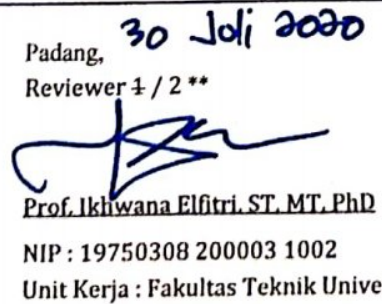 Padang, 30 Joli 2020
Reviewer 1 / 2 **
Prof. Ikhwana Elfitri, ST, MT, PhD
NIP : 19750308 200003 1002
Unit Kerja : Fakultas Teknik Unive